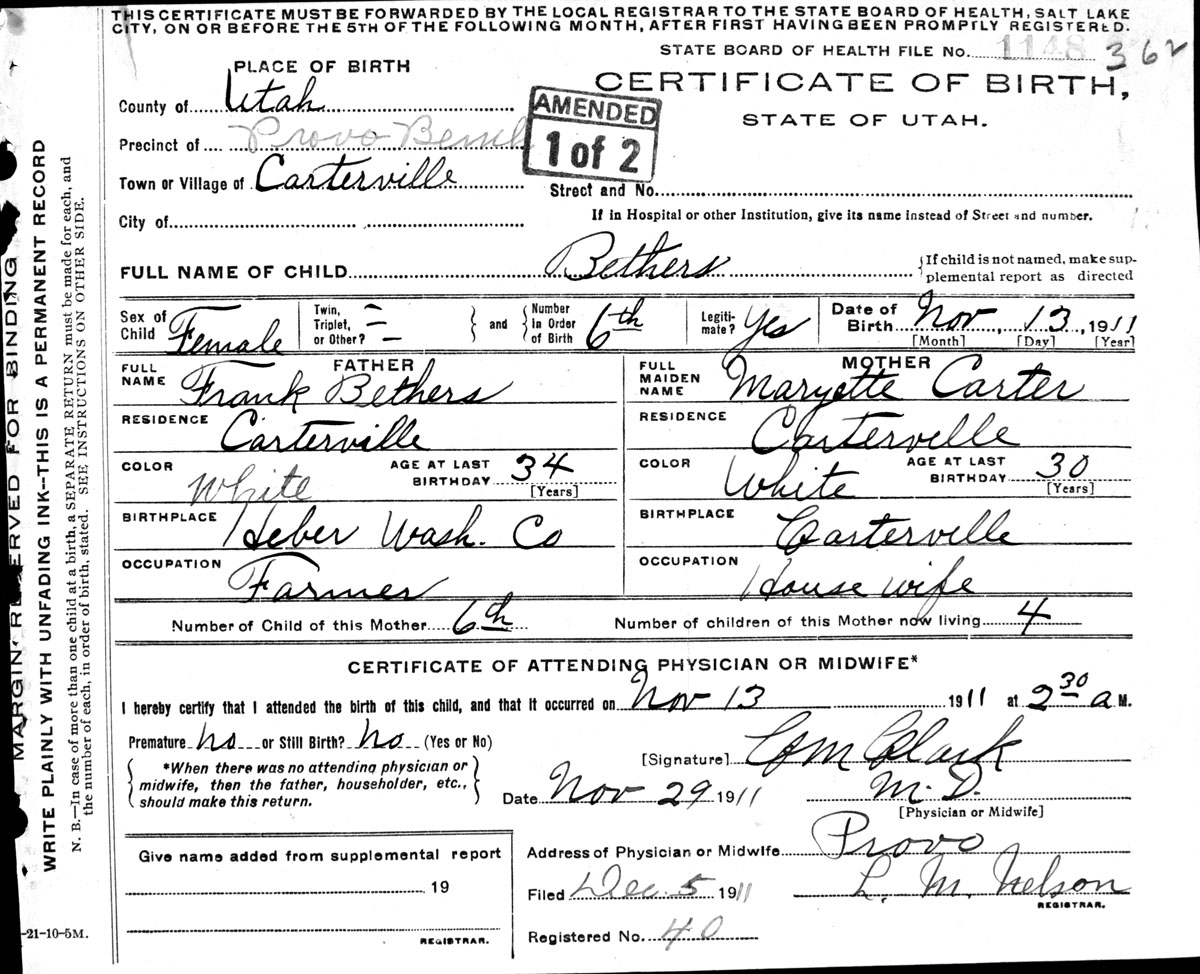 THIS CERTIFICATE MUST BE FORWARDED BY THE LOCAL REGISTRAR TO THE STATE BOARD OF HEALTH, SALT LAKE
CITY, ON OR BEFORE THE 5TH OF THE FOLLOWING MONTH, AFTER FIRST HAVING BEEN PROMPTLY REGISTERED.
STATE BOARD OF HEALTH FILE No. 1148 362
PLACE OF BIRTH
CERTIFICATE OF BIRTH,
STATE OF UTAH.
County of Utah
AMENDED
1 of 2
Precinct of Provo Bench
Town or Village of Carterville
Street and No.
City of
If in Hospital or other Institution, give its name instead of Street and number.
FULL NAME OF CHILD Bethers
{If child is not named, make sup-
plemental report as directed
Sex of Child Female
Twin, Triplet, or Other? and Number in Order of Birth 6th
Legiti- mate? Yes
Date of Birth Nov, 13, 1911
[Month] [Day] [Year]
FATHER
FULL NAME Frank Bethers
RESIDENCE Carterville
COLOR White AGE AT LAST BIRTHDAY 34 [Years]
BIRTHPLACE Heber Wash. Co
OCCUPATION Farmer
MOTHER
FULL MAIDEN NAME Maryette Carter
RESIDENCE Carterville
COLOR White AGE AT LAST BIRTHDAY 30 [Years]
BIRTHPLACE Carterville
OCCUPATION House wife
Number of Child of this Mother 6th Number of children of this Mother now living 4
CERTIFICATE OF ATTENDING PHYSICIAN OR MIDWIFE*
I hereby certify that I attended the birth of this child, and that it occurred on Nov 13 1911 at 2 30 a M.
Premature no or Still Birth? no (Yes or No)
*When there was no attending physician or
midwife, then the father, householder, etc.,
should make this return.
[Signature] Clark
M.D.
Date Nov 29 1911
[Physician or Midwife]
Give name added from supplemental report
19
REGISTRAR.
Address of Physician or Midwife Provo
Filed Dec. 5 1911 L. M. Nelson
REGISTRAR.
Registered No. 40
MARGIN RESERVED FOR BINDING
WRITE PLAINLY WITH UNFADING INK--THIS IS A PERMANENT RECORD
N. B.—In case of more than one child at a birth, a SEPARATE RETURN must be made for each, and
the number of each, in order of birth, stated. SEE INSTRUCTIONS ON OTHER SIDE.
-21-10-5M.